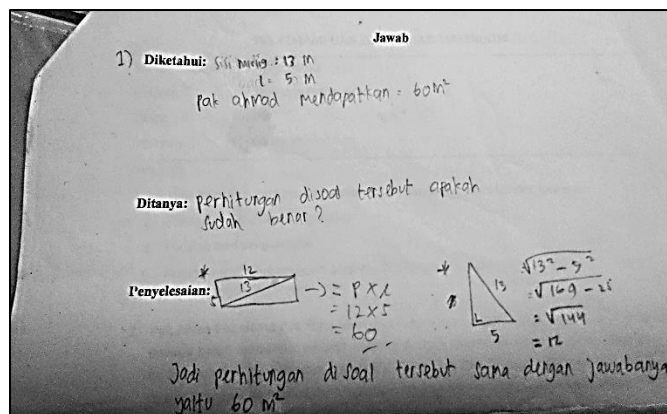 Jawab
1) Diketahui: Sisi miring : 13 m
l = 5 m
pak ahmad mendapatkan = 60 m²
Ditanya: perhitungan disoal tersebut apakah
sudah benar?
Penyelesaian:
* 12
13
5
→ = P x l
= 12 x 5
= 60
* 13
5
√13² - 5²
= √169 - 25
= √144
= 12
Jadi perhitungan di soal tersebut sama dengan jawabanya
yaitu 60 m²